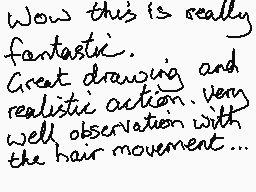 Wow this is really
fantastic.
Great drawing and
realistic action. Very
well observation with
the hair movement...